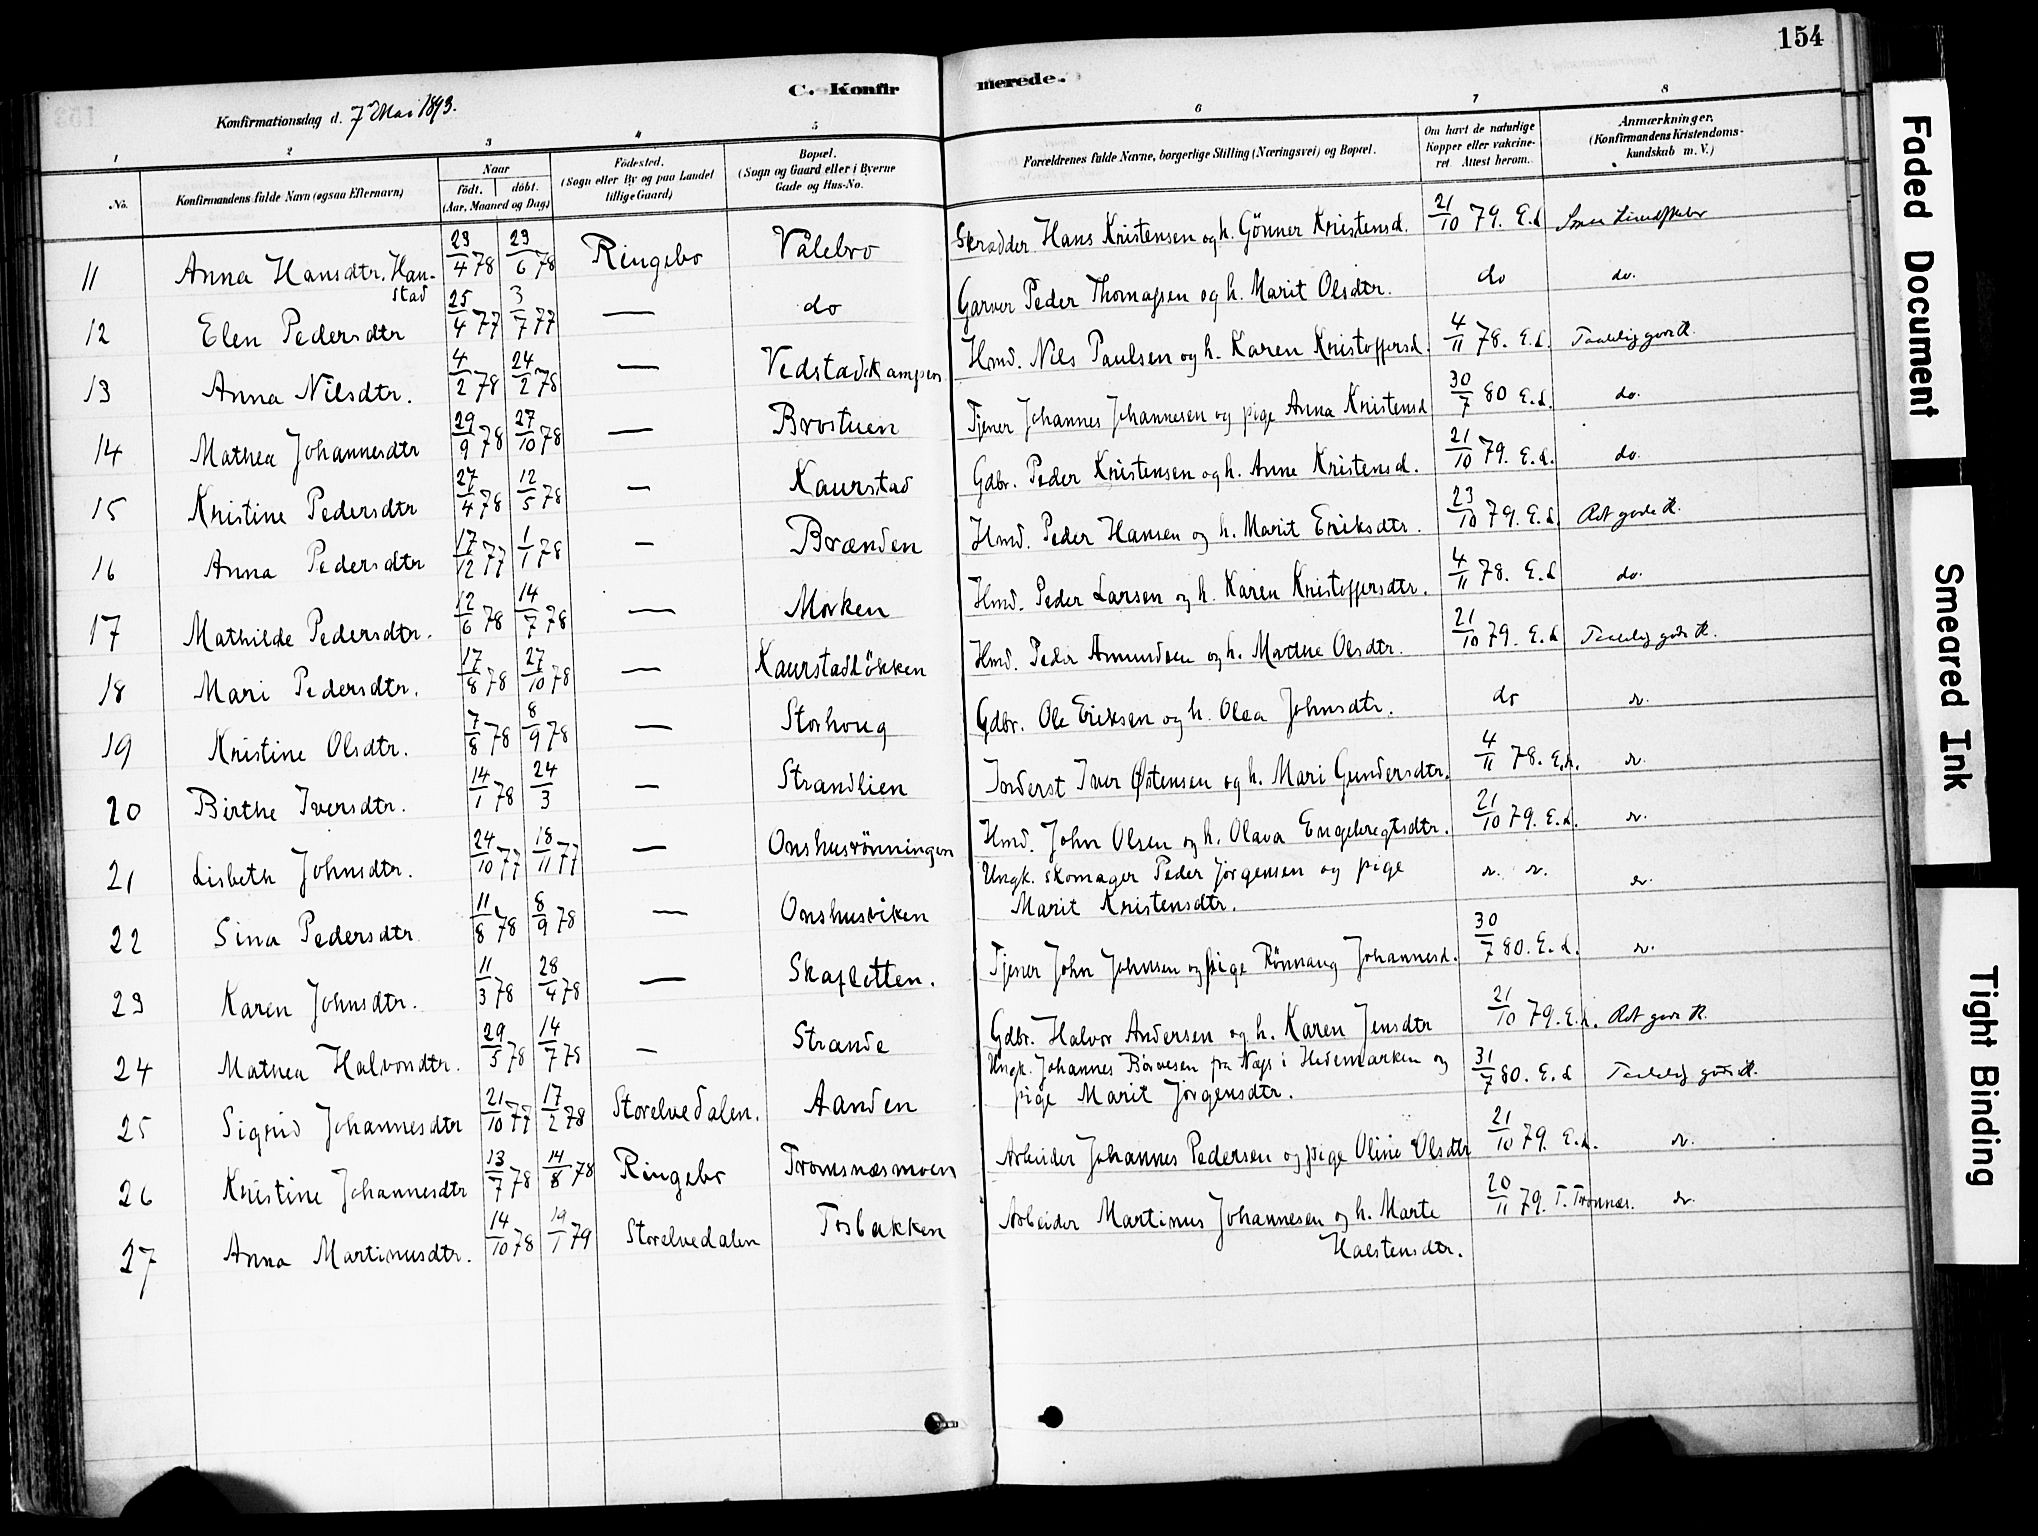 154
C. Konfirmerede.
Konfirmationsdag d. 7de Mai 1893.
1 2 3 4 5 6 7 8
No. Konfirmandens fulde Navn (ogsaa Efternavn) Naar født. døbt. (Aar, Maaned og Dag) Fødested. (Sogn eller By og paa Landet tillige Gaard) Bopæl. (Sogn og Gaard eller i Byerne Gade og Hus-No. Forældrenes fulde Navne, borgerlige Stilling (Næringsvei) og Bopæl. Om havt de naturlige Kopper eller vakcineret. Attest herom. Anmærkninger. (Konfirmandens Kristendomskundskab m. V.)
11 Anna Hansdtr. Hanstad 23/4 78 23/6 78 Ringebo Vålebro Skrædder Hans Kristensen og h. Gönner Kristensd. 21/10 79. E.d.
12 Elen Pedersdtr 25/4 77 3/7 77 — do Garver Peder Thomassen og h. Marit Olsdtr. do do.
13 Anna Nilsdtr. 4/2 78 24/2 78 — Vedstadkampen Hmd. Nils Paulsen og h. Karen Kristoffersd. 4/11 78. E.d. Taalelig gode K.
14 Mathea Johannesdtr 29/9 78 27/10 78 — Brostuen Tjener Johannes Johannesen og pige Anna Kristensd 30/7 80 E.d. do.
15 Kristine Pedersdtr 27/4 78 12/5 78 — Kaurstad Gdbr. Peder Kristensen og h. Anne Kristensd. 21/10 79. E.d. do.
16 Anna Pedersdtr 17/12 77 1/1 78 — Brænden Hmd. Peder Hansen og h. Marit Eriksdtr. 23/10 79. E.d. Ret gode K.
17 Mathilde Pedersdtr. 12/6 78 14/7 78 — Morken Hmd. Peder Larsen og h. Karen Kristoffersdtr. 4/11 78. E.d do.
18 Mari Pedersdtr. 17/8 78 27/10 78 — Kaurstadlökken Hmd. Peder Amundsen og h. Marthe Olsdtr. 21/10 79. E.d Taalelig gode K.
19 Kristine Olsdtr. 7/8 78 8/9 78 — Storhoug Gdbr. Ole Eriksen og h. Olea Johnsdtr. do do.
20 Birthe Iversdtr. 14/1 78 24/3 — Strandlien Inderst Iver Østensen og h. Mari Gundersdtr. 4/11 78. E.d. do.
21 Lisbeth Johnsdtr. 24/10 77 18/11 77 — Onshusrönningen Hmd. John Olsen og h. Olava Engebregtsdtr. 21/10 79. E.d. do.
22 Sina Pedersdtr 11/8 78 8/9 78 — Onshusviken Ungk. skomager Peder Jörgensen og pige do. do. do.
Marit Kristensdtr.
23 Karen Johnsdtr. 11/3 78 28/4 78 — Skafletten. Tjener John Johnsen og pige Rönnaug Johannesd. 30/7 80. E.d. do.
24 Mathea Halvordtr. 29/5 78 14/7 78 — Strande Gdbr. Halvor Andersen og h. Karen Jensdtr 21/10 79. E.d. Ret gode K.
25 Sigrid Johannesdtr 21/10 77 17/2 78 Storelvedalen. Aanden Ungk. Johannes Börresen fra Næs i Hedemarken og 31/7 80. E.d Taalelig gode K.
pige Marit Jörgensdtr.
26 Kristine Johannesdtr 13/7 78 14/8 78 Ringebo Tromsnæsmoen Arbeider Johannes Pedersen og pige Oline Olsdtr 21/10 79. E.d. do.
27 Anna Martinusdtr. 14/10 78 19/1 79 Storelvedalen Tosbakken Arbeider Martinus Johannesen og h. Marte 20/11 79. T. Tronnæs. do.
Halstensdtr.
Faded Document
Smeared Ink
Tight Binding